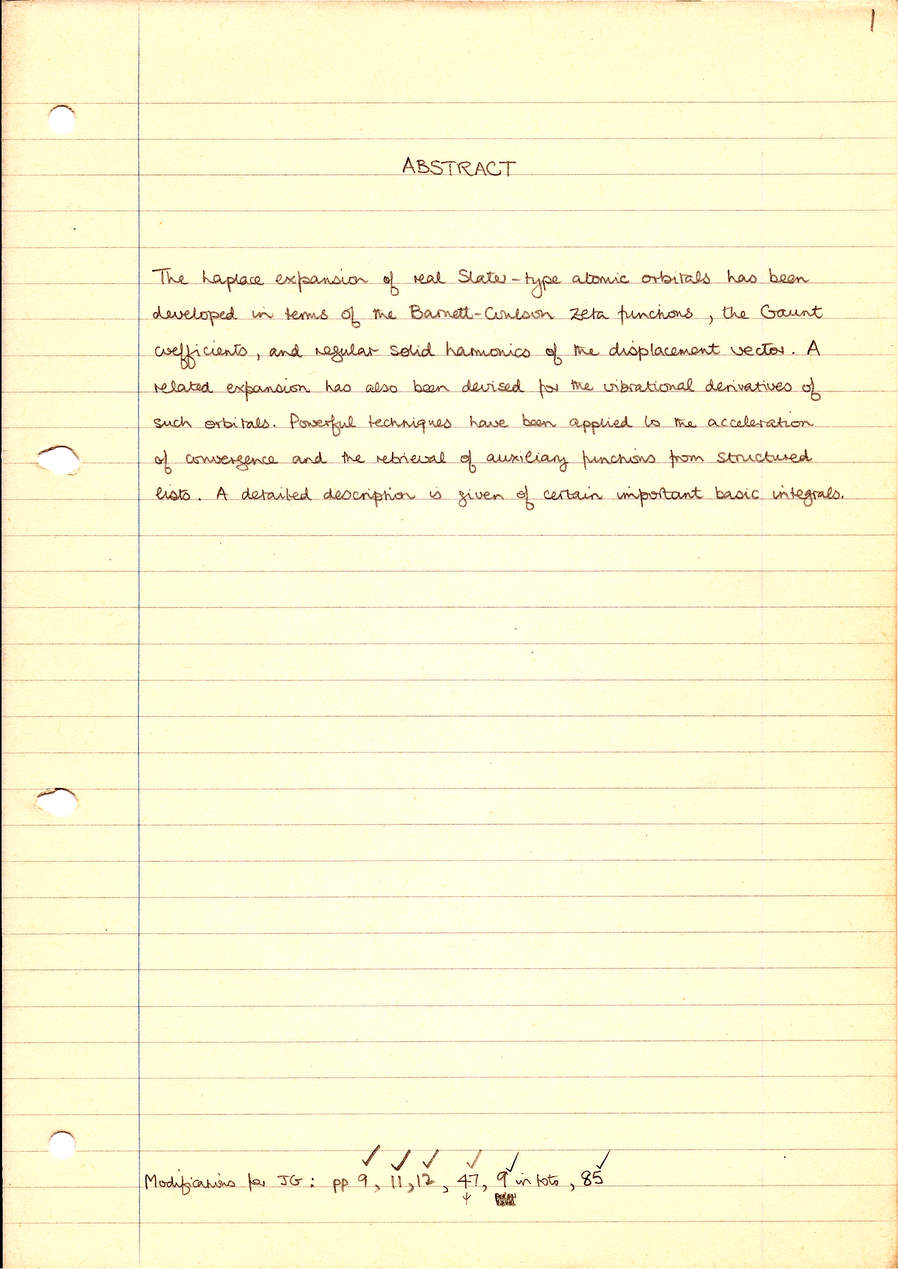 1
ABSTRACT
The Laplace expansion of real Slater-type atomic orbitals has been
developed in terms of the Barnett-Coulson zeta functions, the Gaunt
coefficients, and regular solid harmonics of the displacement vector. A
related expansion has also been devised for the vibrational derivatives of
such orbitals. Powerful techniques have been applied to the acceleration
of convergence and the retrieval of auxiliary functions from structured
lists. A detailed description is given of certain important basic integrals.
Modifications for JG: pp 9, 11, 12, 47, 9 in toto, 85